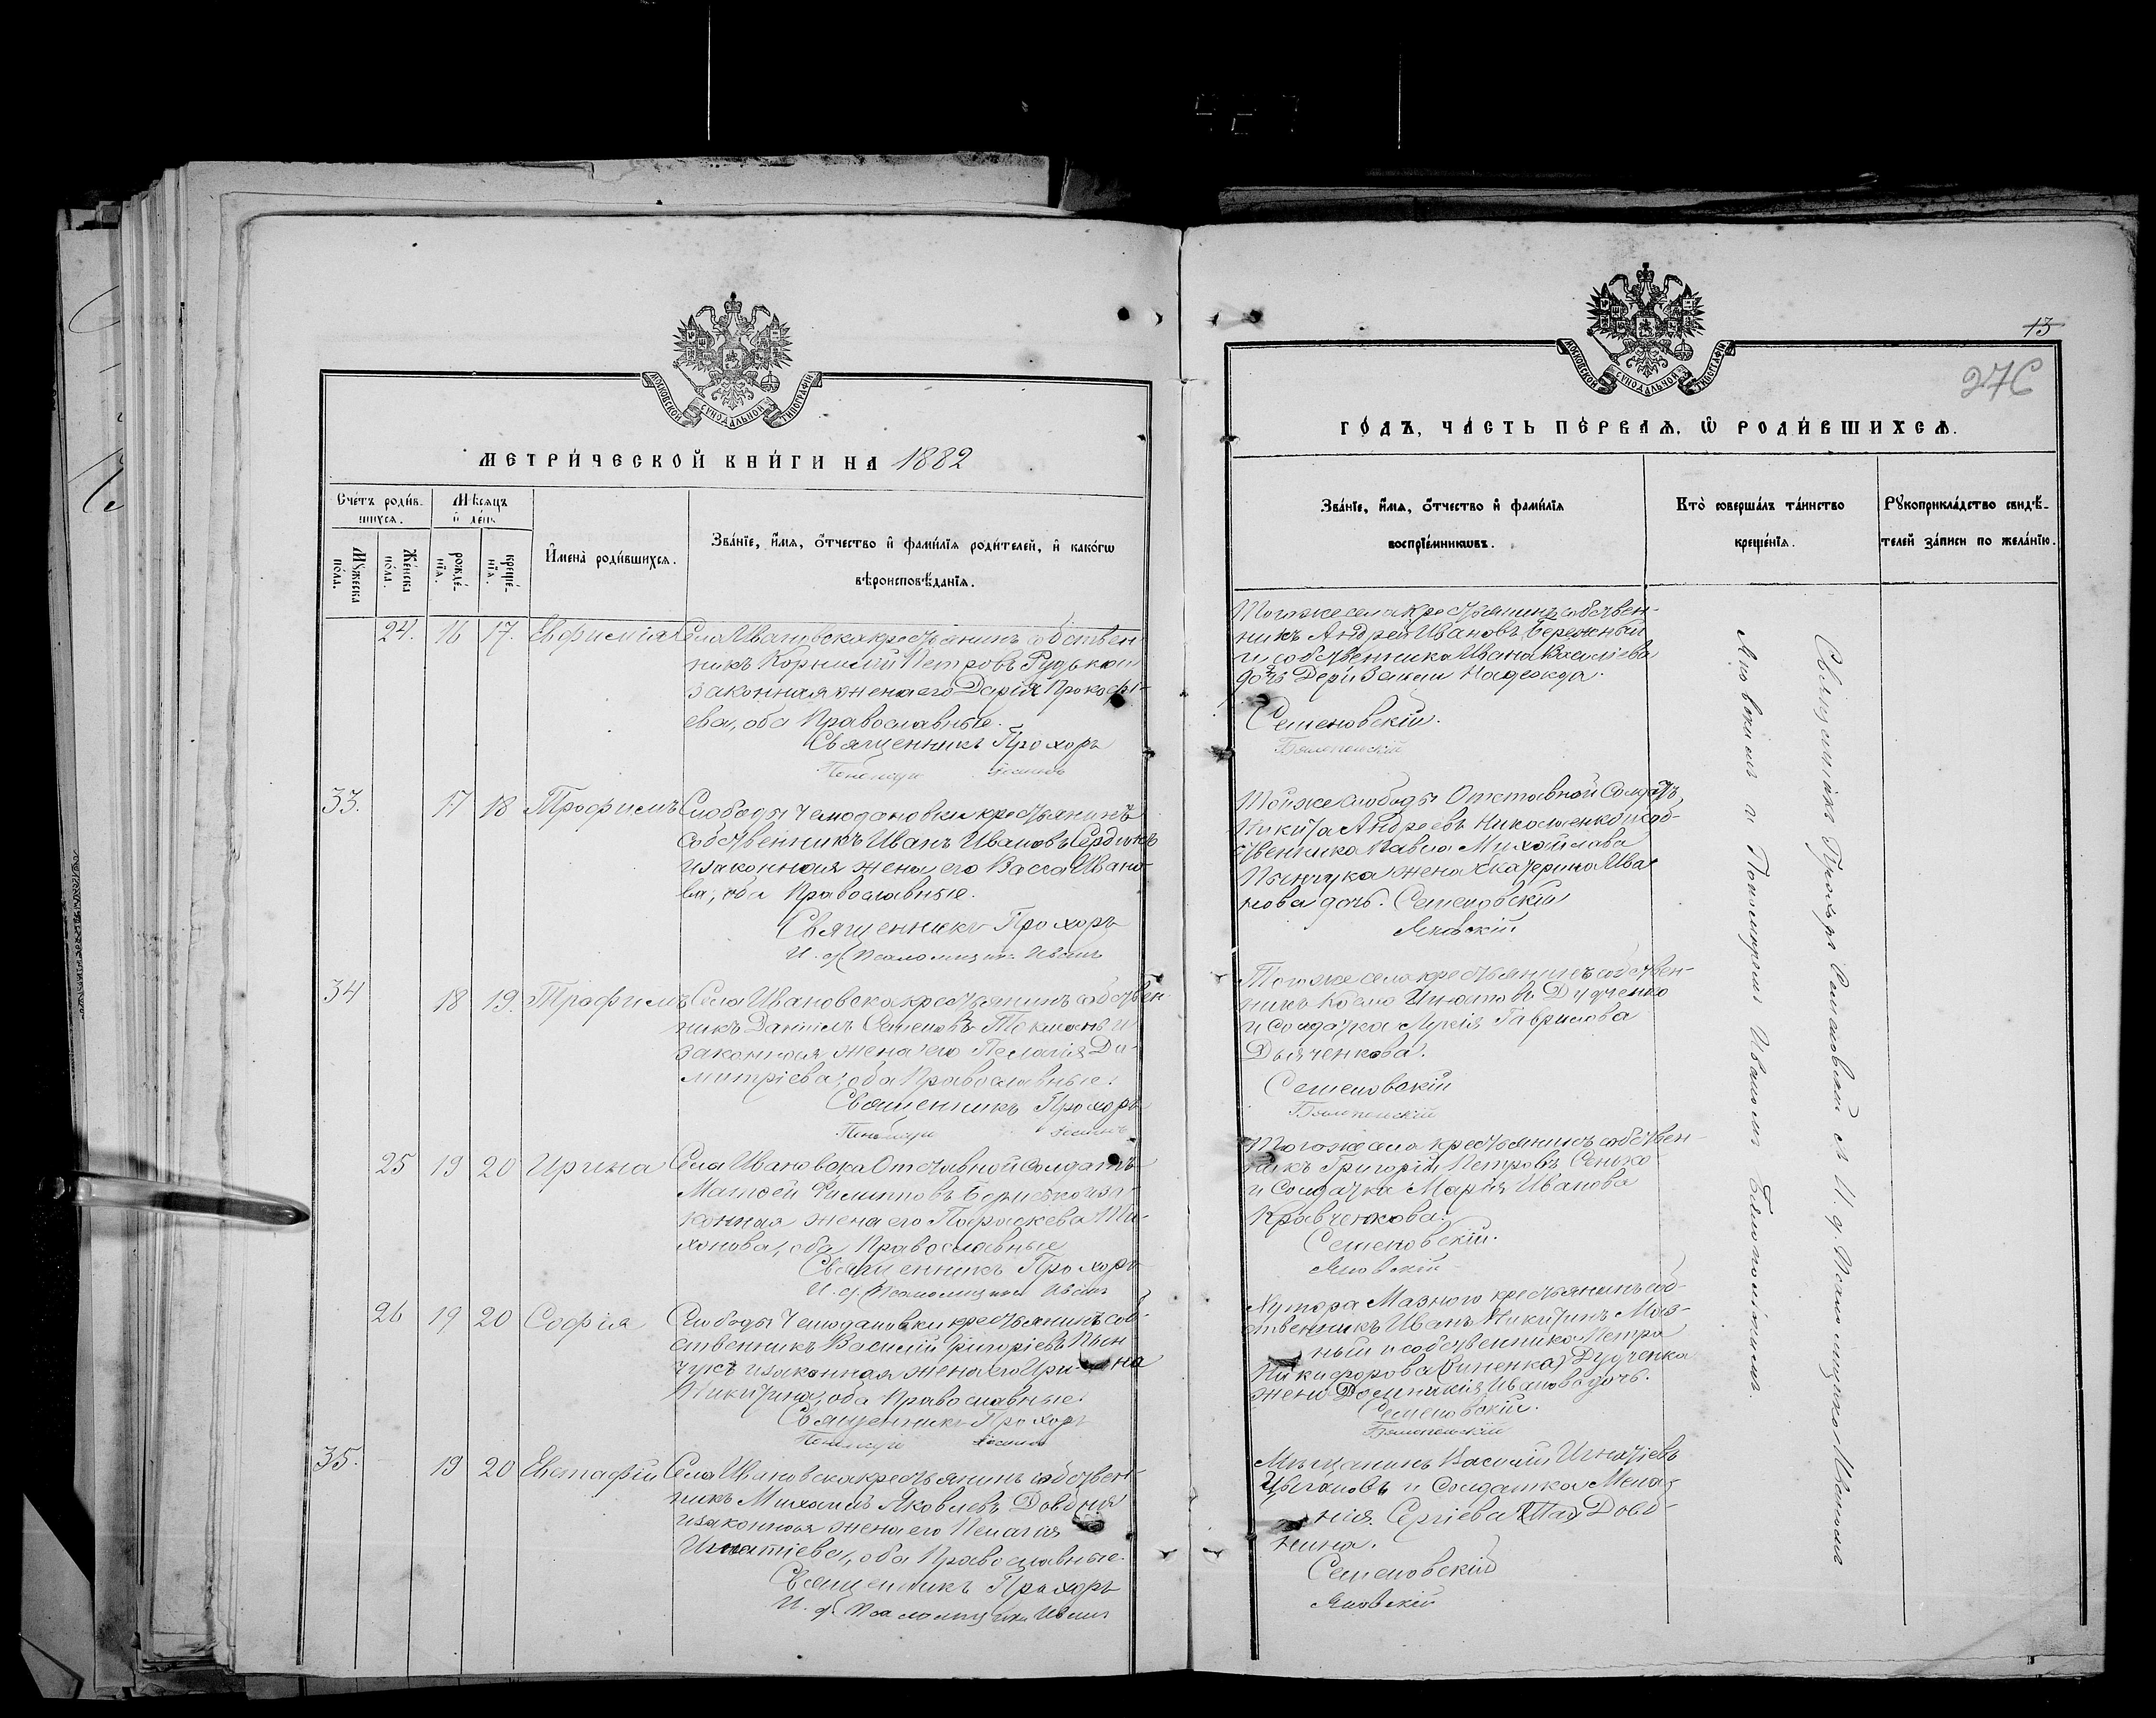 МОСКОВСКОЙ СѴНОДАЛЬНОЙ ТИПОГРАФІИ
МЕТРИ́ЧЕСКОЙ КНИ́ГИ НА 1882
Сче́тъ роди́в-
шихся.
Мѣсяцъ
и҆ де́нь
Мꙋ́жеска
по́ла.
Же́нска
по́ла.
рожде́-
нїѧ.
креще́-
нїѧ.
И҆мена̀ роди́вшихсѧ.
Зва́нїе, и҆́мѧ, ѻ҆́тчество и҆ фами́лїѧ роди́телей, и҆ како́гѡ
вѣроисповѣ́данїѧ.
24. 16 17. Евфимія Села Ивановска крестьянинъ собствен-
никъ Корнилій Петровъ Рудько и
законная жена его Дарія Прокофі-
ева, оба Православные.
Священникъ Прохоръ
33. 17 18 Трофимъ Слободы Чемодановки крестьянинъ
собственникъ Иванъ Ивановъ Сердюкъ
и законная жена его Васса Ивано-
ва, оба Православные.
Священникъ Прохоръ
И. д. Псаломщика Иванъ
34 18 19. Трофимъ Села Ивановска крестьянинъ собствен-
никъ Даніилъ Семеновъ Токмань и
законная жена его Пелагія Ди-
митріева, оба Православные.
Священникъ Прохоръ
25 19 20 Ирина Села Ивановска Отставной солдатъ
Матвей Филипповъ и за-
конная жена его Параскева Ти-
хонова, оба Православные
Священникъ Прохоръ
И. д. Псаломщика Иванъ
26 19 20 Софія Слободы Чемодановки крестьянинъ соб-
ственникъ Василій Григорьевъ Пын
чукъ и законная жена его Ири-на
Никитина, оба Православные.
Священникъ Прохоръ
35. 19 20 Евстафій Села Ивановска крестьянинъ собствен-
никъ Михаилъ Яковлевъ Довбня
и законная жена его Пелагія
Игнатіева, оба Православные.
Священникъ Прохоръ
И. д. Псаломщика Иванъ
МОСКОВСКОЙ СѴНОДАЛЬНОЙ ТИПОГРАФІИ
13
276
ГО́ДЪ, ЧА́СТЬ ПЕ́РВАѦ, Ѽ РОДИ́ВШИХСѦ.
Зва́нїе, и҆́мѧ, ѻ҆́тчество и҆ фами́лїѧ
воспрїе́мникѡвъ.
Кто̀ соверша́лъ та́инство
креще́нїѧ.
Рꙋкоприкла́дство свидѣ́-
телей за́писи по жела́нїю.
Того же села крестьянинъ собствен-
никъ Андрей Ивановъ Бережный
и собственника Ивана Василіева
дочь Надежда.
Семеновскій.
Той же слободы Отставной Солдатъ
Никита Андреевъ Николаенко и соб-
ственника Павла Михайлова
Пынчука жена Екатерина Ива
нова дочь. Семеновскій
Яновскій
Того же села крестьянинъ собствен-
никъ Козма Игнатовъ Дудченко
и Солдатка Марія Гаврилова
Дьяченкова.
Семеновскій
Того же села крестьянинъ собствен-
никъ Григорій Петровъ Сенько
и Солдатка Марія Иванова
Кравченкова.
Семеновскій.
Яновскій
Хутора Мазного крестьянинъ соб-
ственникъ Иванъ Никитинъ Маз-
ный и собственника Петра
Никифорова Дудченка
жена Домникія Иванова дочь.
Семеновскій.
Мѣщанинъ Василій Игнатіевъ
Цыгановъ и Солдатка Мела-
нія Сергіева Довб-
нина.
Семеновскій
Яновскій
Священникъ Прохоръ Семеновскій съ И. д. Псаломщика Иваномъ
Яновскимъ и Иваномъ